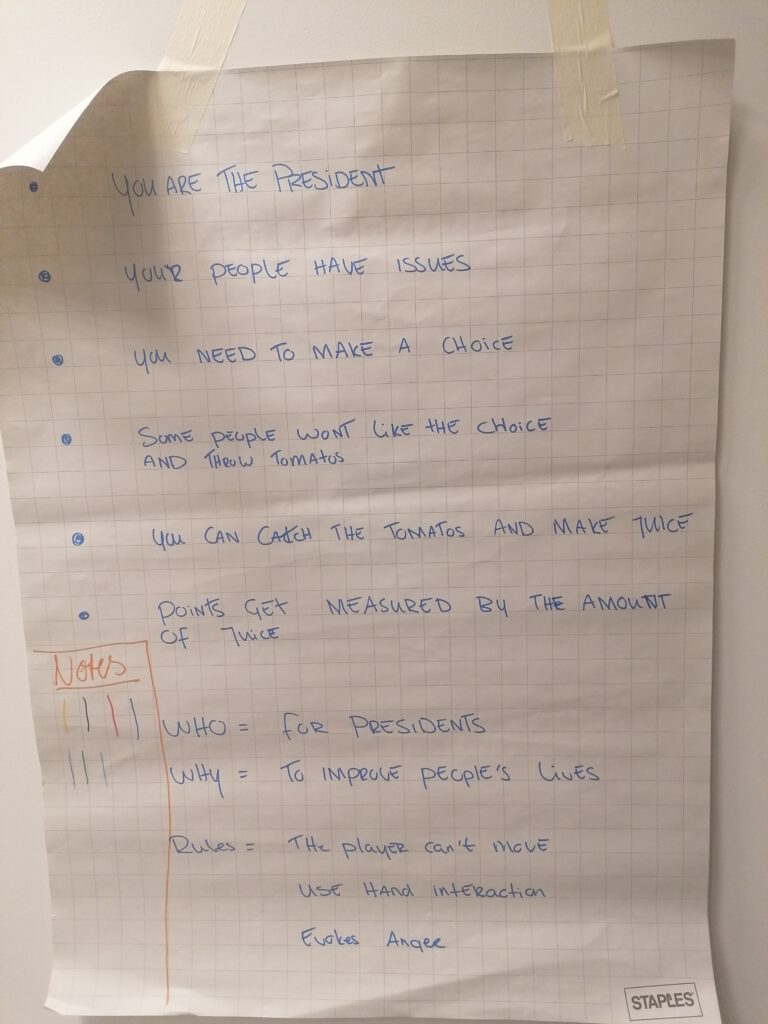 YOU ARE THE PRESIDENT
YOUR PEOPLE HAVE ISSUES
YOU NEED TO MAKE A CHOICE
SOME PEOPLE WONT LIKE THE CHOICE
AND THROW TOMATOS
YOU CAN CATCH THE TOMATOS AND MAKE JUICE
POINTS GET MEASURED BY THE AMOUNT
OF JUICE
Notes
WHO = FOR PRESIDENTS
WHY = TO IMPROVE PEOPLE'S LIVES
Rules = THE player can't move
USE HAND interaction
Evokes Anger
STAPLES